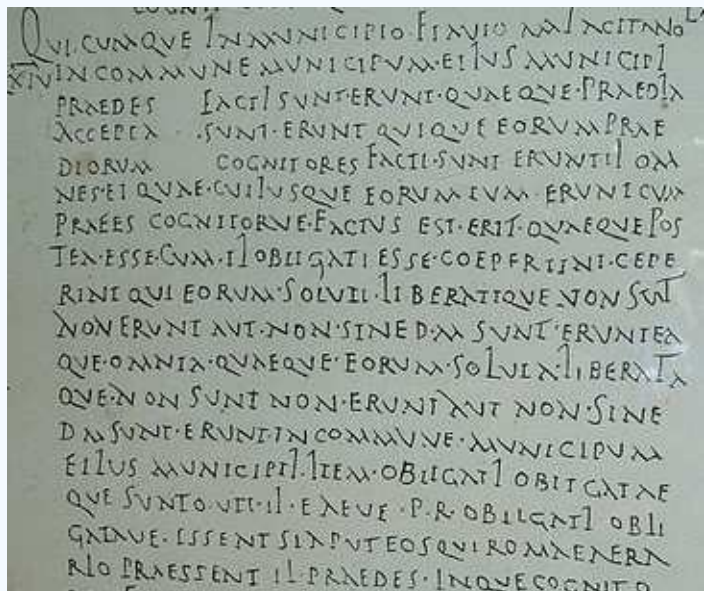 QUICUMQUE IN MUNICIPIO FLAVIO MALACITANO
XIV IN COMMUNE MUNICIPUM·EIIUS MUNICIPI
PRAEDES FACTI SUNT·ERUNT·QUAEQUE·PRAEDIA
ACCEPTA ·SUNT·ERUNT QUIQUE EORUM PRAE
DIORUM COGNITORES FACTI·SUNT ERUNT II OM
NES·ET QUAE·CUIIUSQUE EORUM TUM·ERUNT CUM
PRAEES COGNITORVE·FACTUS EST·ERIT·QUAEQUE POS
TEA·ESSE·CUM·II OBLIGATI ESSE·COEPERUNT·CEPE
RINT QUI EORUM·SOLUTI·LIBERATIQUE NON SUNT
NON ERUNT AUT·NON·SINE D·M SUNT·ERUNT EA
QUE·OMNIA·QUAEQUE·EORUM·SOLUTA·LIBERATA
QUE·NON SUNT NON·ERUNT AUT NON·SINE
D M SUNT·ERUNT·IN COMMUNE·MUNICIPUM
EIIUS MUNICIPII·ITEM·OBLIGATI OBLIGATAE
QUE SUNTO·UTI·II·EAEVE·P·R·OBLIGATI OBLI
GATAVE·ESSENT SI APUT EOS QUI ROMAE AERA
RIO PRAESSENT II·PRAEDES·INQUE COGNITO